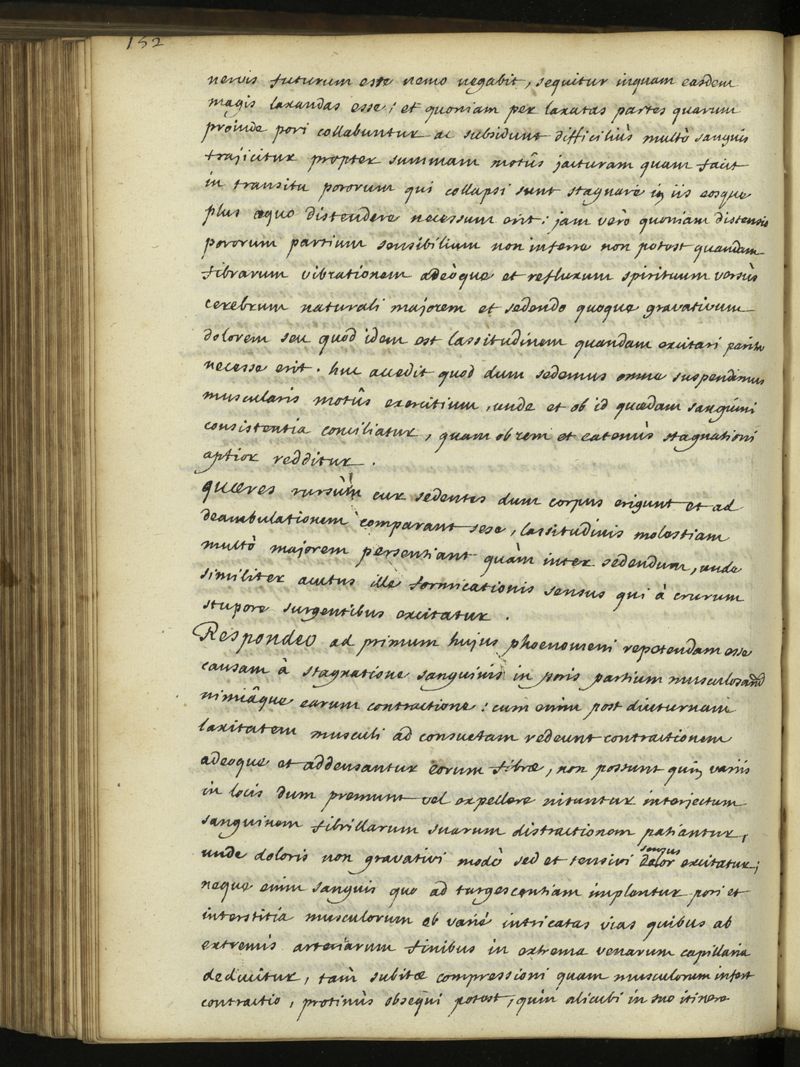 152
nervis futurum esse nemo negabit, sequitur inquam easdem
magis laxandas esse; et quoniam per laxatas partes quarum
proinde pori collabuntur ac subsidunt difficiliùs multò sanguis
trajicitur propter summam motûs jacturam quam facit
in transitu pororum qui collapsi sunt stagnare in iis eosque
plus æquo distendere necessum erit; jam verò quoniam distensio
pororum partium sensibilium non inferre non potest quandam
fibrarum vibrationem adeòque et refluxum spirituum versùs
cerebrum naturali majorem et sedendo quoque gravativum
dolorem seu quod idem est lassitudinem quandam excitari pariter
necesse erit. huc accedit quod dum sedemus omne suspendimus
muscularis motûs exercitium, unde et ob id quædam sanguini
consistentia conciliatur, quam ob rem et eatenùs stagnationi
aptior redditur.
quæres rursùm cur sedentes dum corpus erigunt et ad
deambulationem comparant sese, lassitudinis molestiam
multò majorem persentiant quàm inter sedendum, unde
similiter acutus ille formicationis sensus qui à crurum
stupore surgentibus excitatur.
Respondeo ad primum hujus phoenomeni repetendam esse
causam à stagnatione sanguinis in poris partium musculosarum
nimiâque earum contractione: cum enim post diuturnam
laxitatem musculi ad consuetam redeunt contractionem
adeoque et addensantur eorum fibræ, non possunt quin variis
in locis dum premunt vel expellere nituntur interjectum
sanguinem fibrillarum suarum distractionem patiantur,
unde doloris non gravativi modò sed et tensivi sensus dolor excitatur;
neque enim sanguis quo ad turgescentiam implentur pori et
interstitia musculorum ob variè intricatas vias quibus ab
extremis arteriarum finibus in extrema venarum capillaria
deducitur, tàm subitæ compressioni quam musculorum infert
contractio, protinùs obsequi potest, quin alicubi in suo itinere